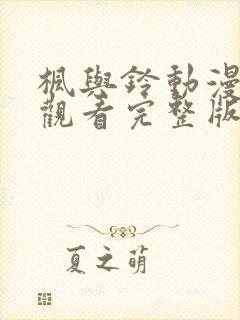 楓與鈴動漫
觀看完整版
夏之萌